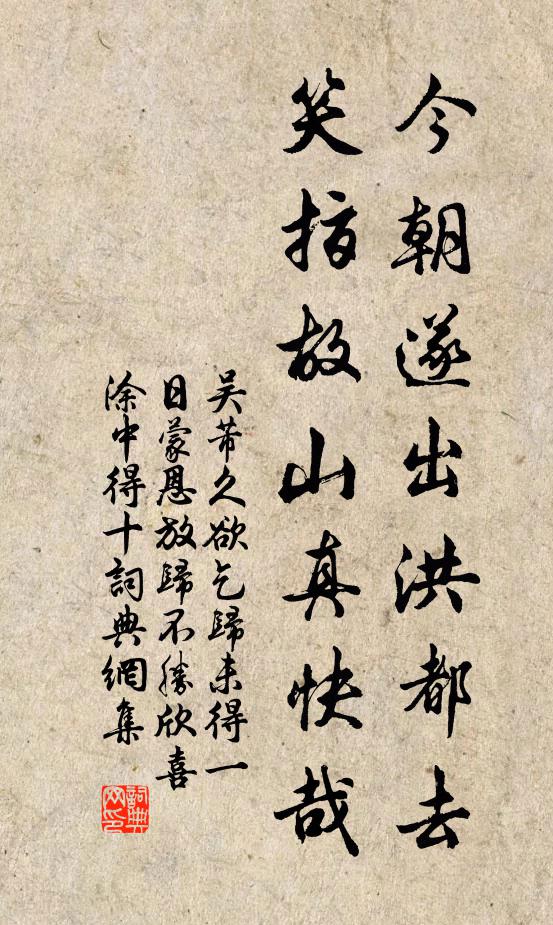 今朝遂出洪都去
笑指故山真快哉
吴芾久欲乞歸未得一
日蒙恩放歸不勝欣喜
涂中得十詞典網集
詞典
网印